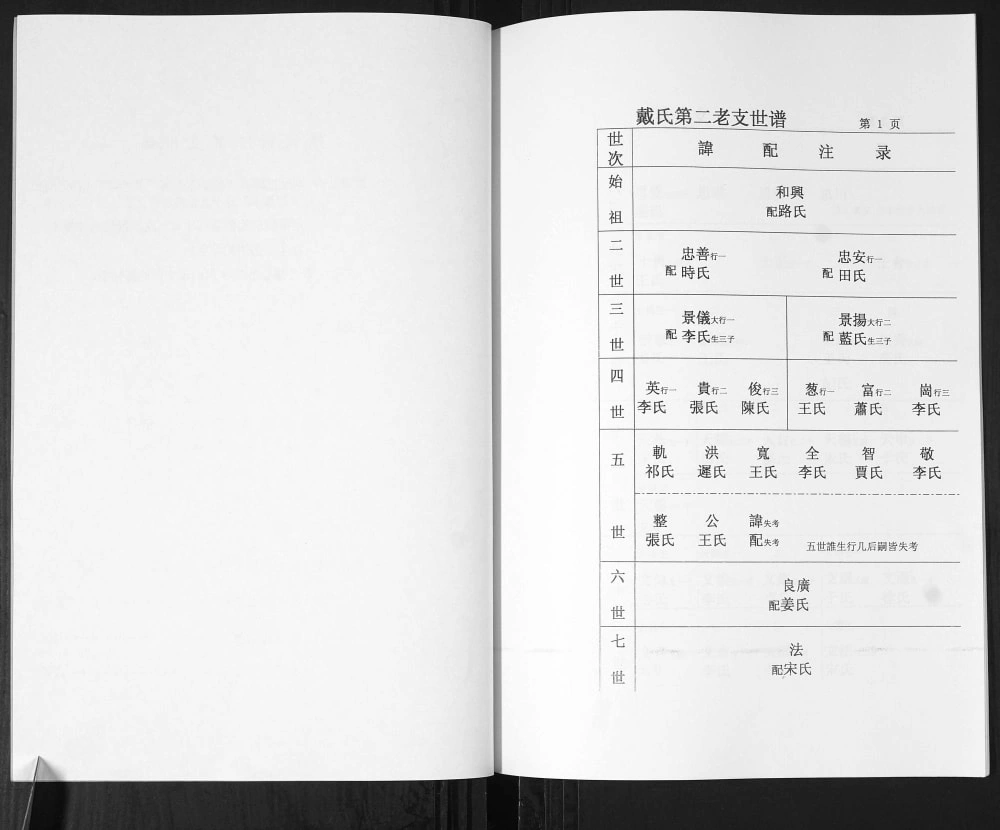 戴氏第二老支世谱 第 1 页
世次 諱 配 注 录
始祖 和興
配路氏
二世 忠善行一 忠安行一
配 時氏 配 田氏
三世 景儀大行一 景揚大行二
配 李氏生三子 配 藍氏生三子
四世 英行一 貴行二 俊行三 葱行一 富行二 崗行三
李氏 張氏 陳氏 王氏 蕭氏 李氏
五世 軌 洪 寬 全 智 敬
祁氏 遲氏 王氏 李氏 賈氏 李氏
整 公 諱失考
張氏 王氏 配失考 五世誰生行几后嗣皆失考
六世 良廣
配姜氏
七世 法
配宋氏